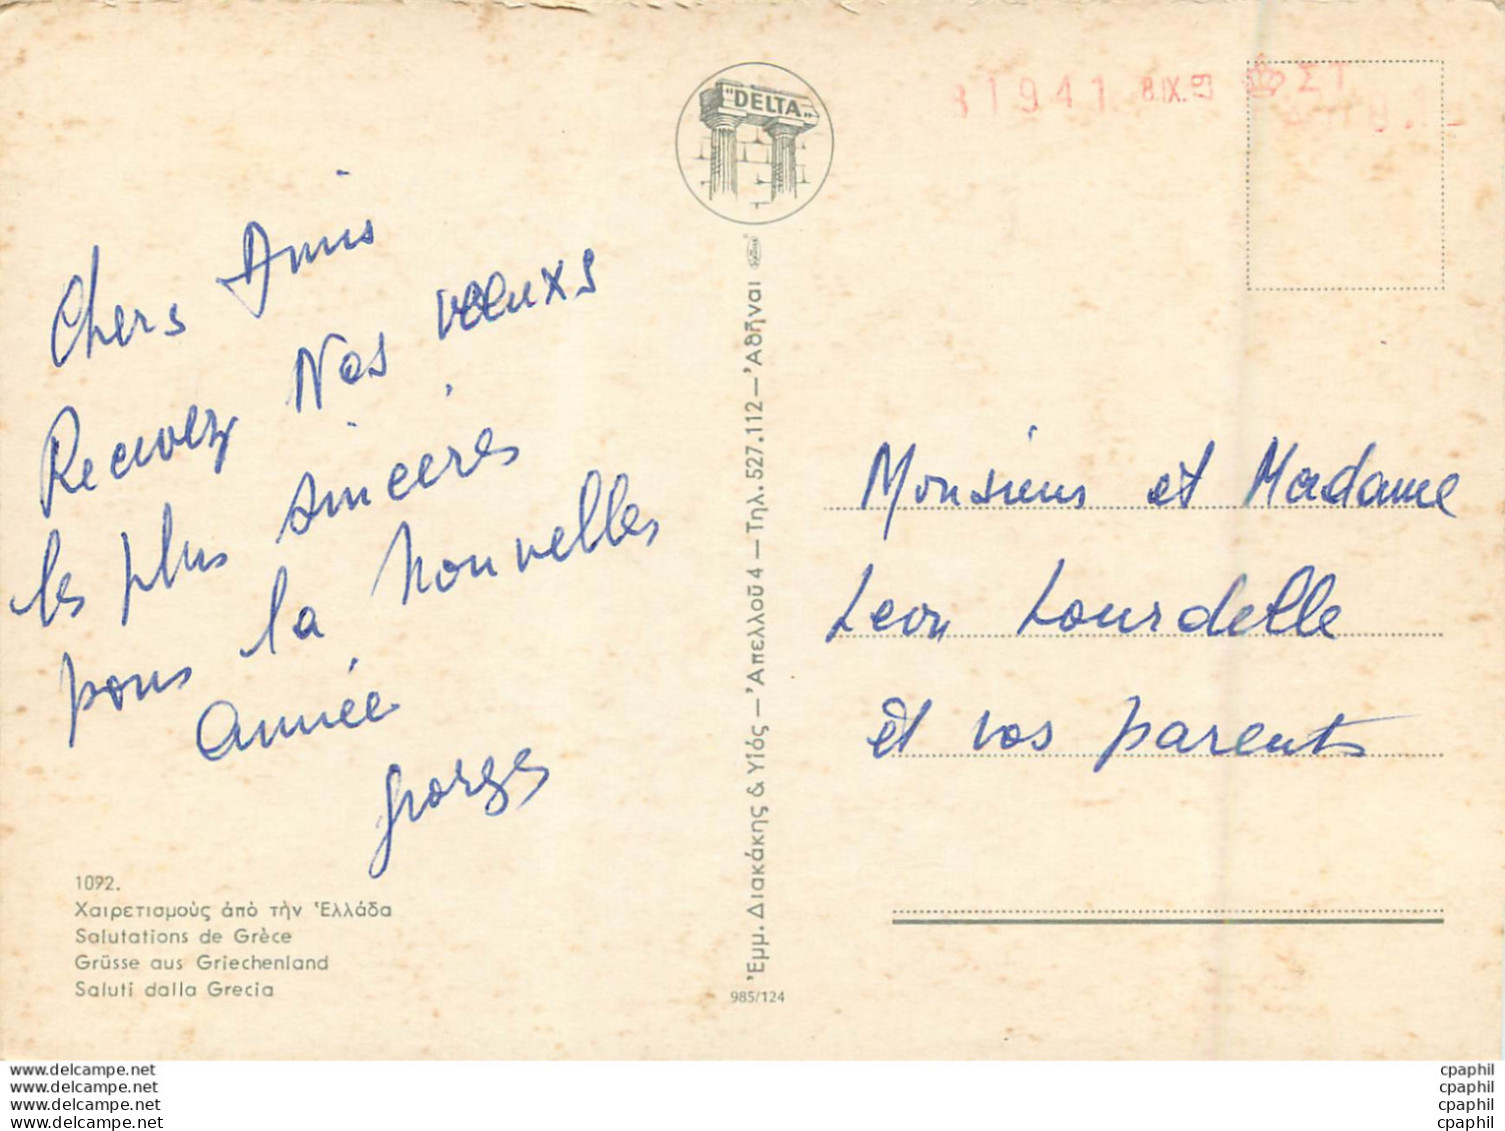 Chers Amis
Recevez Nos veeuxs
les plus sincéres
pous la nouvelles
année
georges
1092.
Χαιρετισμοὺς ἀπὸ τὴν Ἑλλάδα
Salutations de Grèce
Grüsse aus Griechenland
Saluti dalla Grecia
"DELTA„
Ἐμμ. Διακάκης & Υἱός — Ἀπελλοῦ 4 — Τηλ. 527.112 — Ἀθῆναι
985/124
1941 8.IX.
Monsieus et Madame
Leon Lourdelle
et vos parents
www.delcampe.net
www.delcampe.net
www.delcampe.net
www.delcampe.net
cpaphil
cpaphil
cpaphil
cpaphil